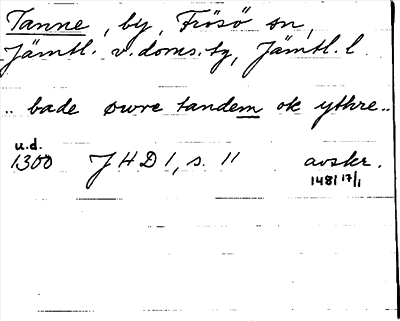 Tanne, by, Frösö sn,
Jämtl. v. doms. tg, Jämtl. l.
.. bade øwre tandem ok ythre ..
u.d.
1300 JHD 1, s. 11 avskr.
1481 17/1